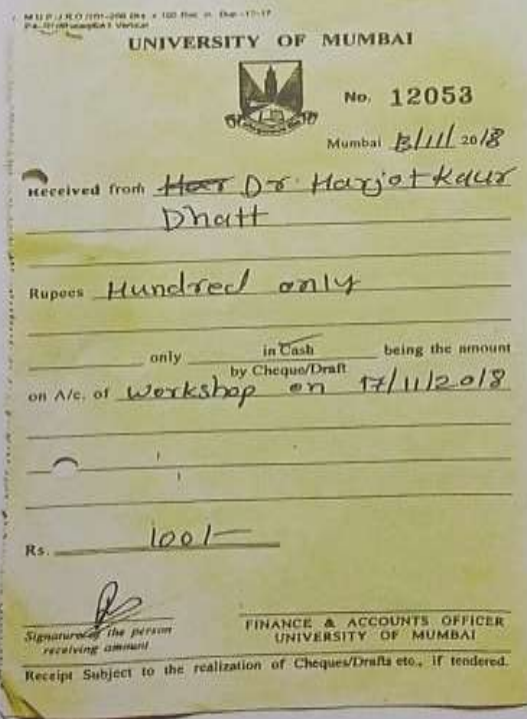 UNIVERSITY OF MUMBAI
No. 12053
Mumbai 13/11/2018
Received from Dr. Harjot Kaur
Dhatt
Rupees Hundred only
only in Cash being the amount
by Cheque/Draft
on A/c. of Workshop on 17/11/2018
Rs. 100/-
Signature of the person
receiving amount
FINANCE & ACCOUNTS OFFICER
UNIVERSITY OF MUMBAI
Receipt Subject to the realization of Cheques/Drafts etc., if tendered.